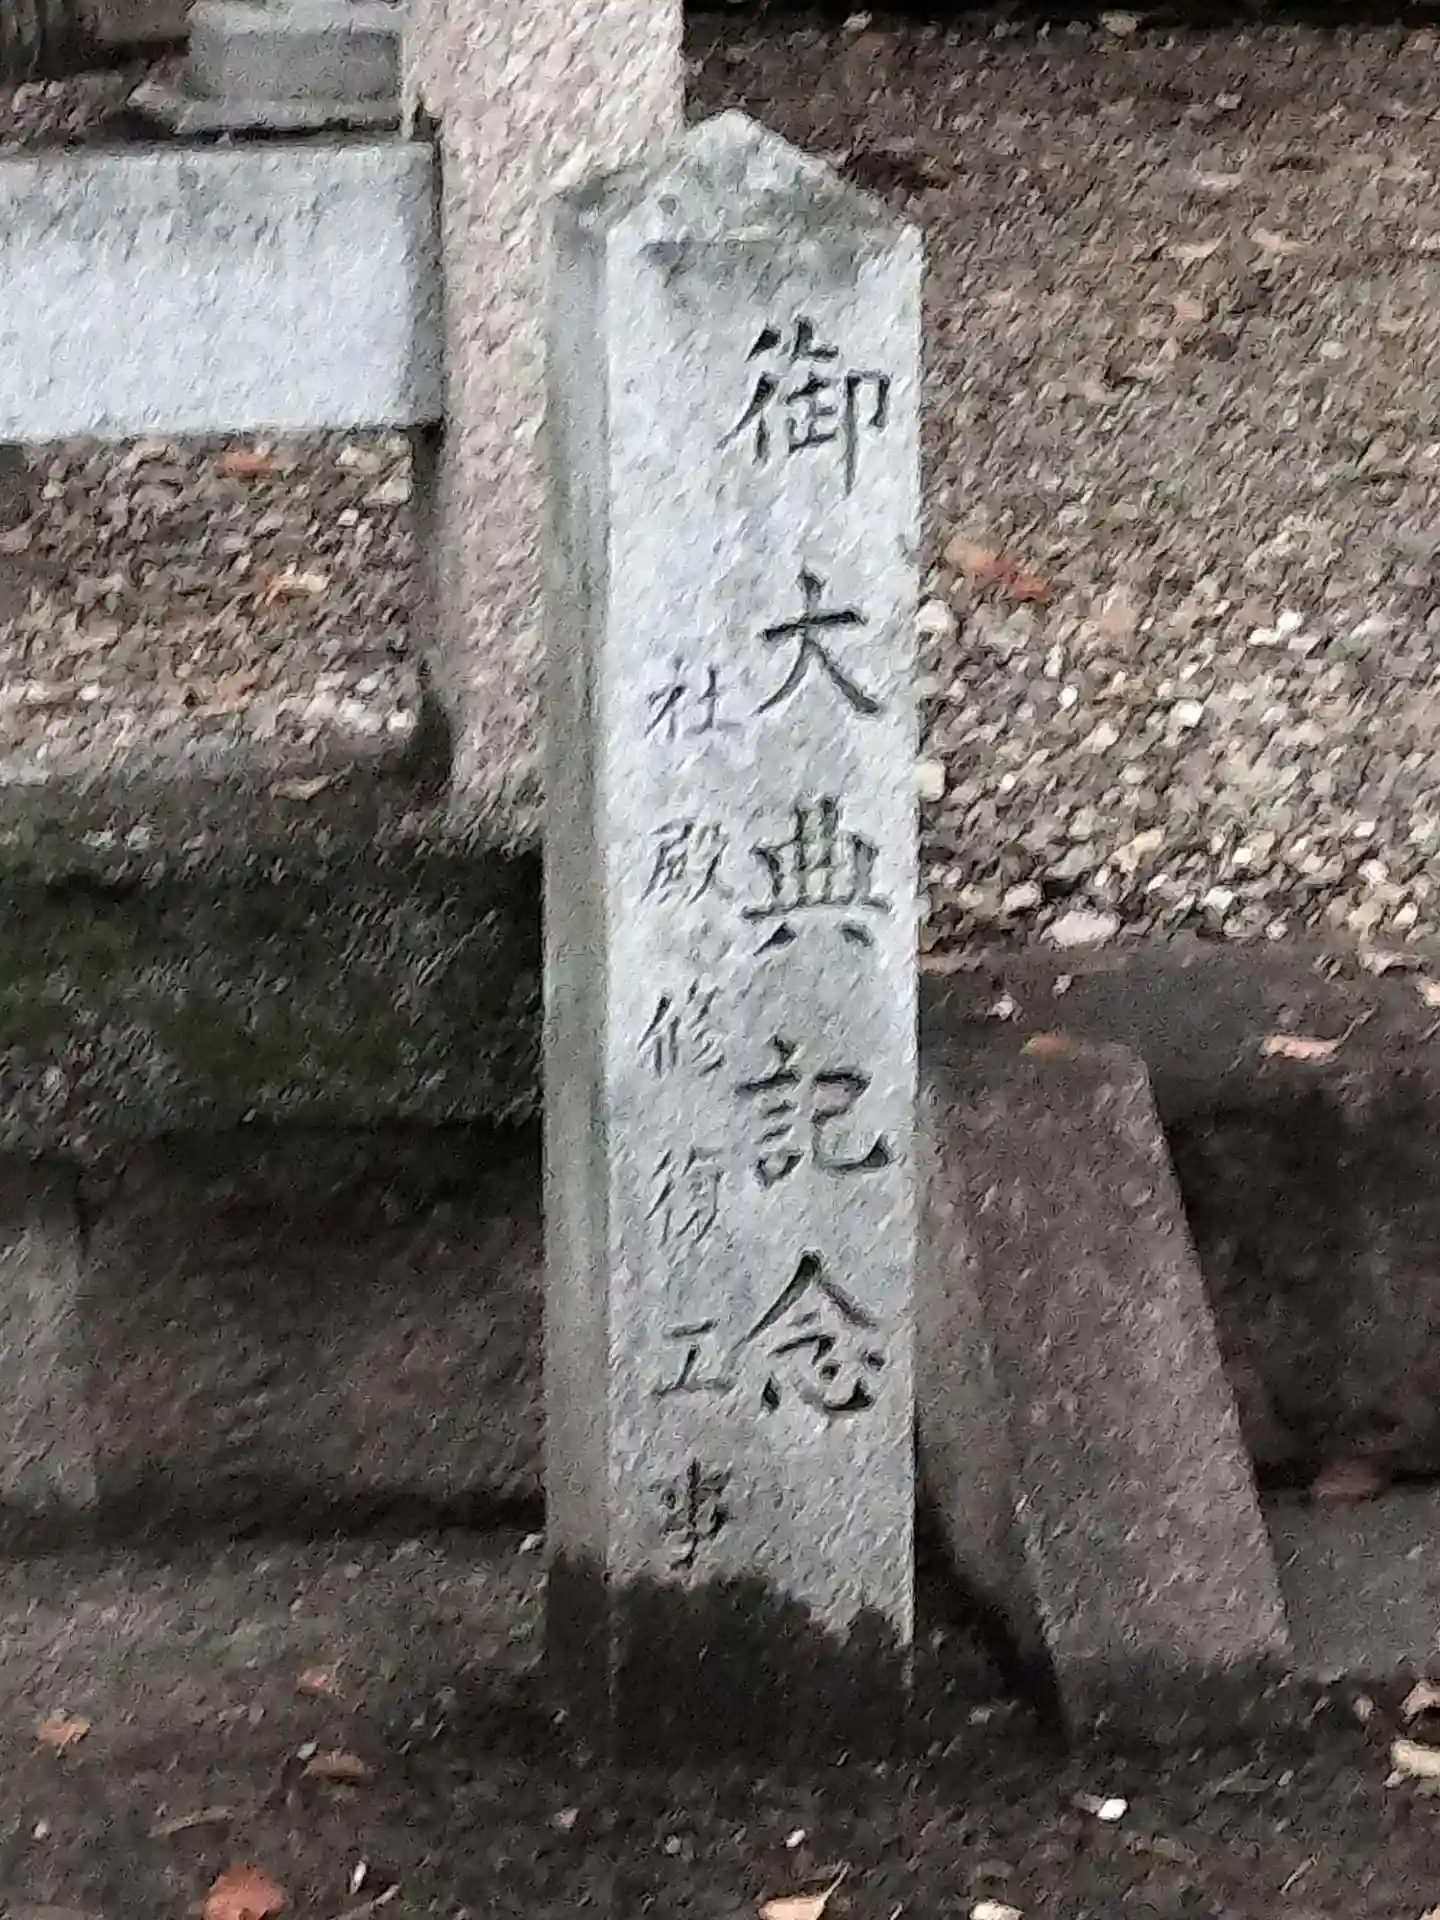 御大典記念
社殿修復工事